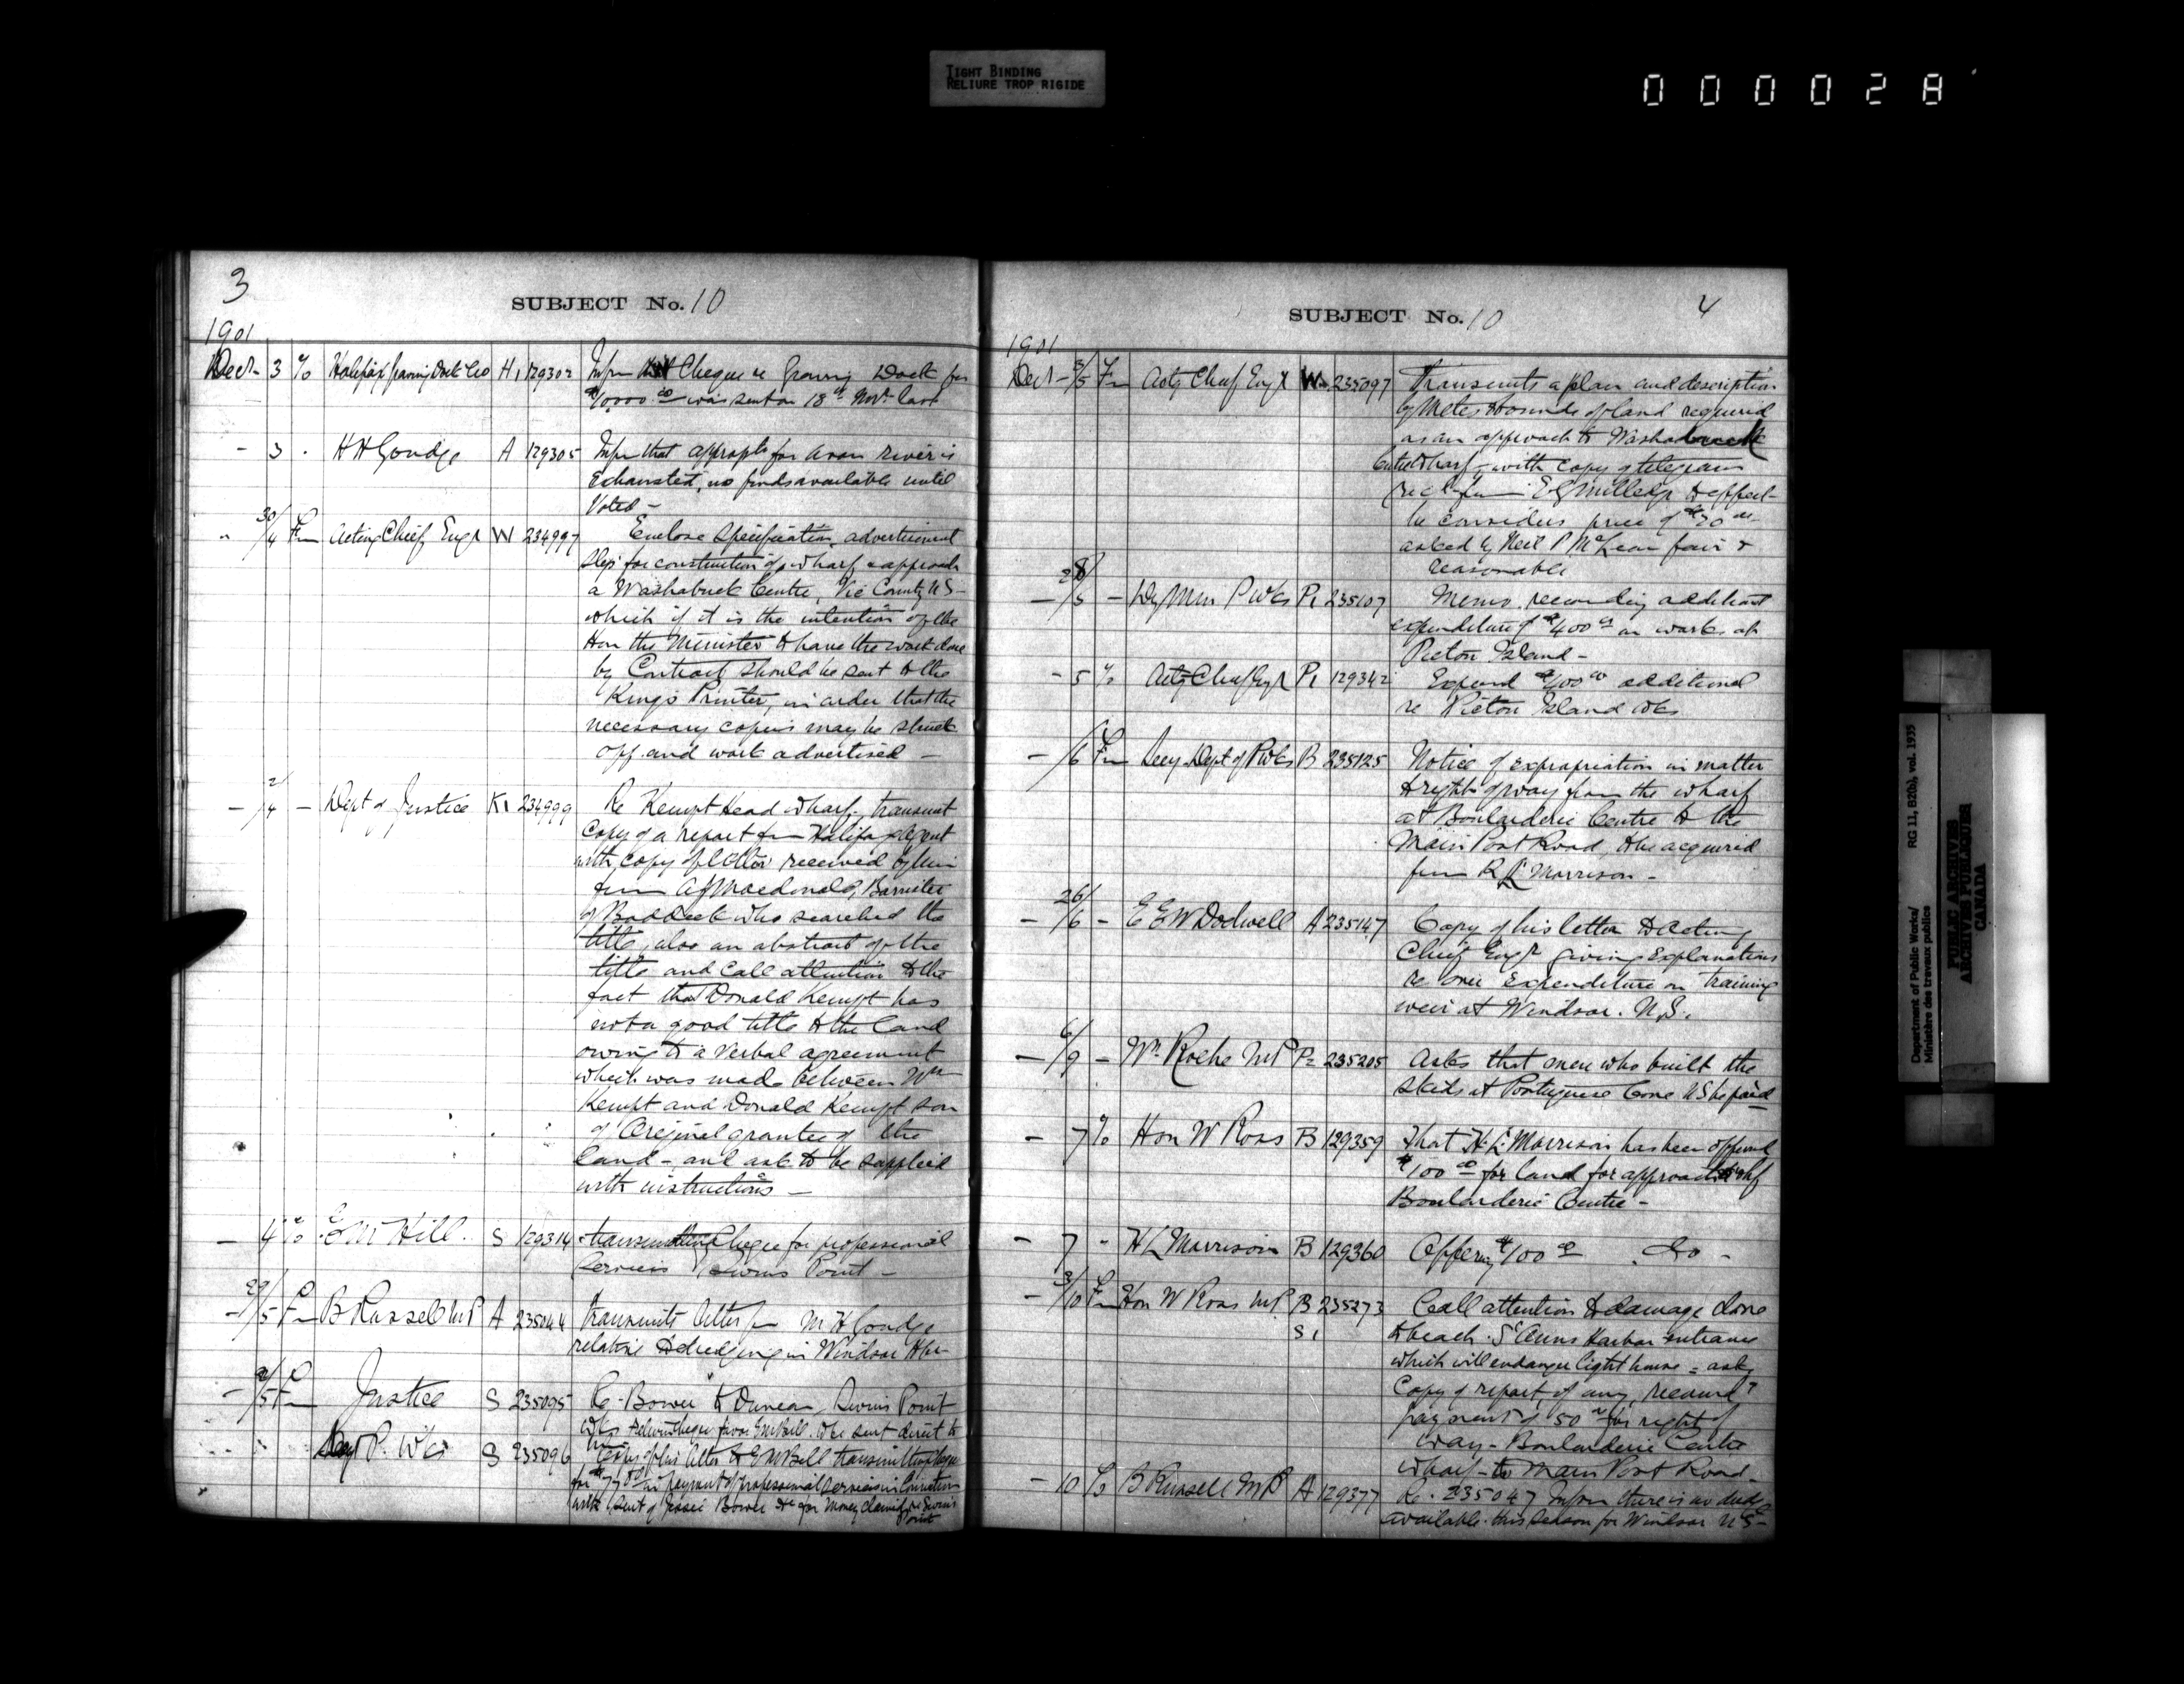 TIGHT BINDING
RELIURE TROP RIGIDE
000028
3
SUBJECT No. 10
1901
Decr 3 To Halifax Graving Dock Co H1 129302 Infm Cheque re Graving Dock for
$10,000 00 was sent on 18th Novr last
- 3 . H H Goudge A 129305 Infm that appropt for Avon river is
Exhausted, no funds available until
Voted -
" 30/4 Fm Acting Chief Engr W 234997 Enclose Specification, advertisement
slip for construction of wharf & approach
a Washabuck Centre, Vic County NS -
which if it is the intention of the
Hon the Minister to have the work done
by Contract should be sent to the
Kings Printer, in order that the
necessary copies may be struck
off and work advertised -
- 2/4 - Dept of Justice K1 234999 Re Kempt Head wharf, transmit
Copy of a report fm Halifax agent
with copy of letter received by him
from A J Macdonald, Barrister
of Baddeck who searched the
title, also an abstract of the
title and call attention to the
fact that Donald Kempt has
not a good title to the land
owing to a verbal agreement
which was made between Wm
Kempt and Donald Kempt son
of Original grantee of the
land - and ask to be supplied
with instructions -
- 4 To E M Hill S 129314 transmitting Cheque for professional
Services Point -
- 29/5 Fm B Russell MP A 235044 transmits letter fm M H Goudge
relative to dredging in Windsor Hbr
- 2/5 Fm Justice S 235095 Re Bower & Duncan Point
Wks cheque favor E M Bill be sent direct to
him
" " Secy P. Wks S 235096 Copy of his letter to E M Bill transmitting cheque
for $77 in payment of professional services in Connection
with suit of Jessie Bower for money claimed re
Point
SUBJECT No. 10
4
1901
Decr - 3/5 Fm Actg Chief Engr W 235097 Transmits a plan and description
by Metes & bounds of land required
as an approach to Washabuck
Centre Wharf, with copy of telegram
recd from E G Millidge to effect
he considers price of $20 00
asked by Neil P McLean fair &
reasonable
- 28/5 - Dy Min P Wks P1 235107 Memo recording additional
expenditure of $400 00 on works at
Pictou Island -
- 5 To Actg Chief Engr P1 129342 Expend $400 00 additional
re Pictou Island Wks
- 6/6 Fm Secy Dept of P Wks B 235125 Notice of expropriation in matter
to right of way from the wharf
at Boularderie Centre to the
Main Post Road, to be acquired
from R L Morrison -
- 26/6 - E E W Dodwell A 235147 Copy of his letter to Acting
Chief Engr giving Explanations
re over Expenditure on training
weir at Windsor. N.S.
- 6/9 - Wm Roche MP P2 235205 Asks that men who built the
skids at Portuguese Cove NS be paid
- 7 To Hon W Ross B 129359 That H L Morrison has been offered
$100 00 for land for approach to whf
Boularderie Centre -
- 7 - H L Morrison B 129360 Offering $100 00 . Do -
- 3/10 Fm Hon W Ross MP B 235273 Call attention to damage done
S1 to beach. St Anns Harbor entrance
which will endanger light house = asks
Copy of report, if any, received &
payment of 50 00 for right of
way - Boularderie Centre
Wharf - to Main Post Road -
- 10 To B Russell MP A 129377 Re. 235047 Infm there is no dredge
available this season for Windsor NS -
Department of Public Works/
Ministère des travaux publics
RG 11, B2(b), vol. 1935
PUBLIC ARCHIVES
ARCHIVES PUBLIQUES
CANADA